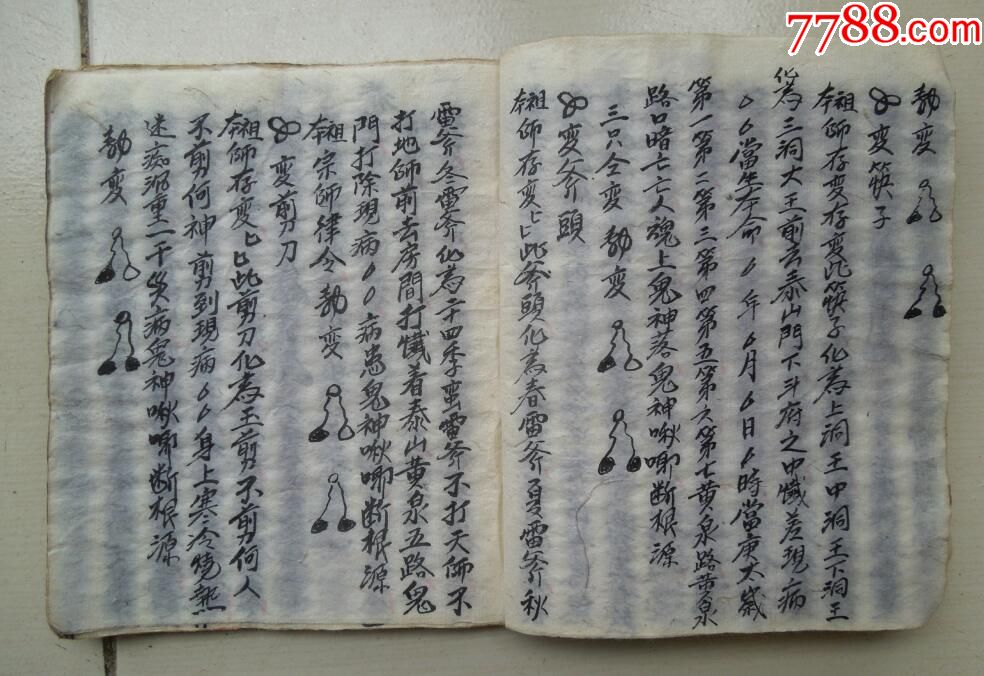 7788.com
勅变
变筷子
本祖师存变存变此筷子化為上洞王中洞王下洞王
化為三洞大王前去泰山門下斗府之中懺差現病
當生本命 年 月 日 時當庚太歲
第一第二第三第四第五第六第七黄泉路黄泉
路口暗亡亡人魂上鬼神落鬼神啾唧断根源
三只仝变 勅变
变斧頭
本祖师存变匕匕此斧頭化為春雷斧夏雷斧秋
雷斧冬雷斧化為二十四季蛮雷斧不打天师不
打地师前去房間打懺着泰山黄泉五路鬼
門打除現病 病患鬼神啾唧断根源
本祖宗师律令勅变
变剪刀
本祖师存变匕匕此剪刀化為玉剪刀不剪何人
不剪何神剪到現病 身上寒冷燒熱
迷痴沉重二千災病鬼神啾唧断根源
勅变